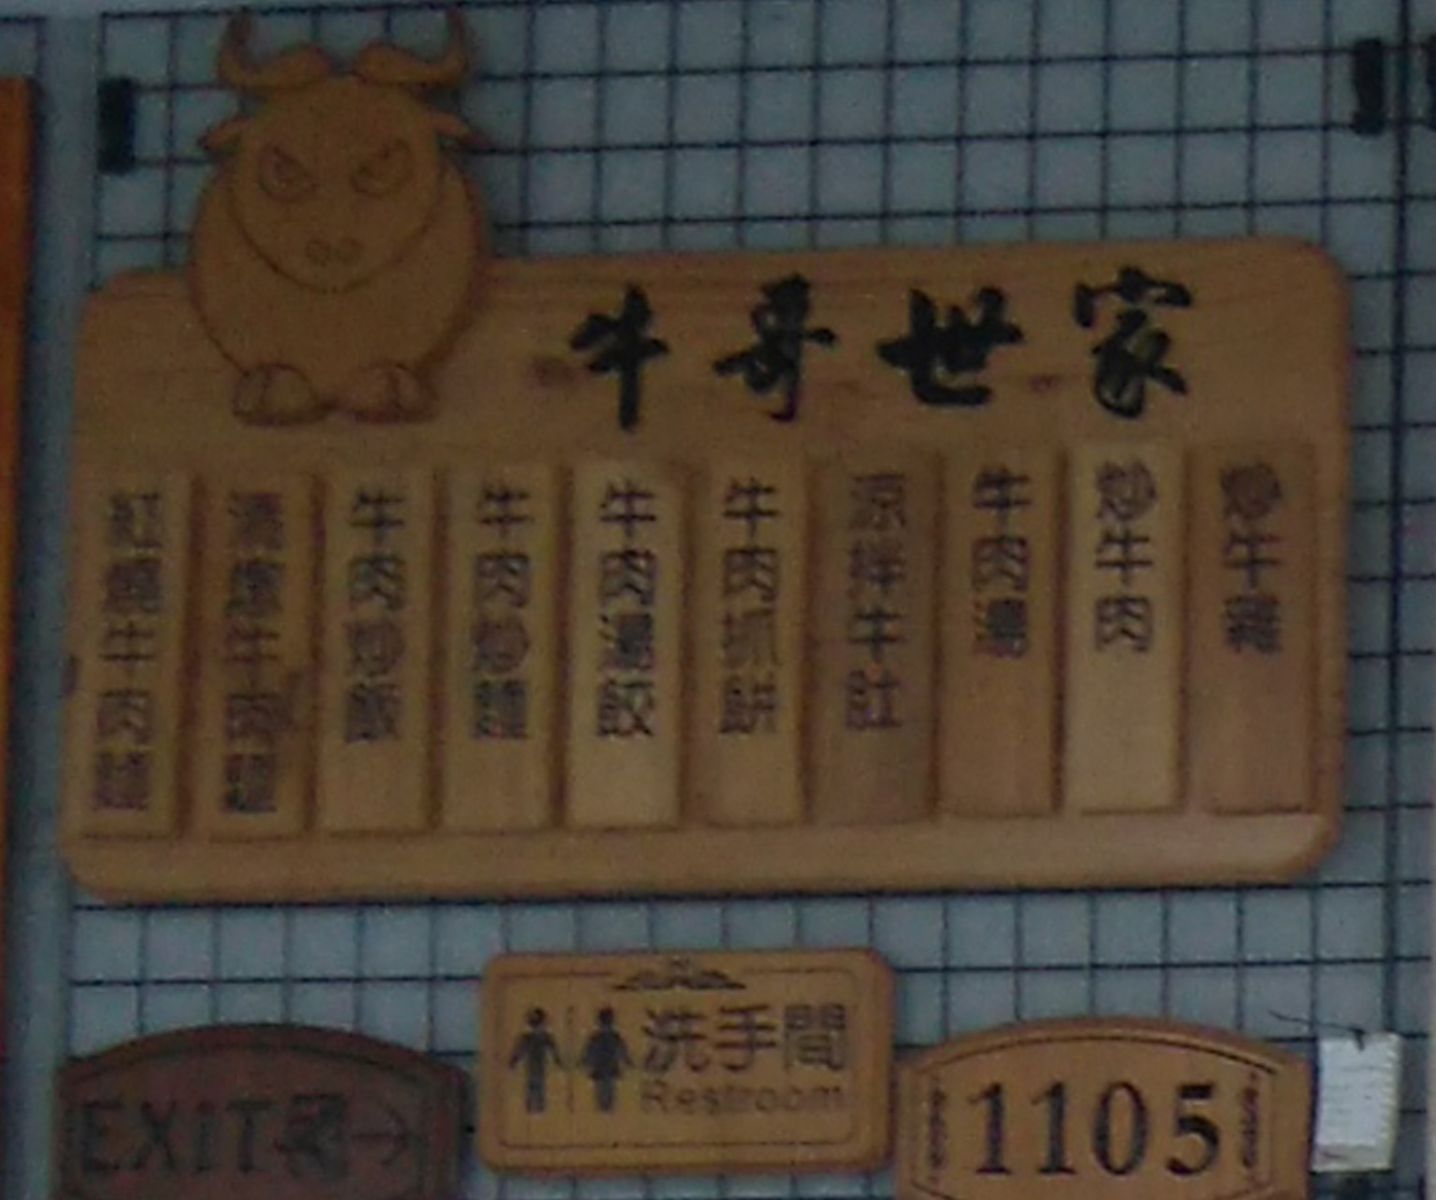 牛哥世家
紅燒牛肉麵
清燉牛肉麵
牛肉炒飯
牛肉炒麵
牛肉湯餃
牛肉抓餅
涼拌牛肚
牛肉湯
炒牛肉
炒牛雜
洗手間
Restroom
EXIT
1105